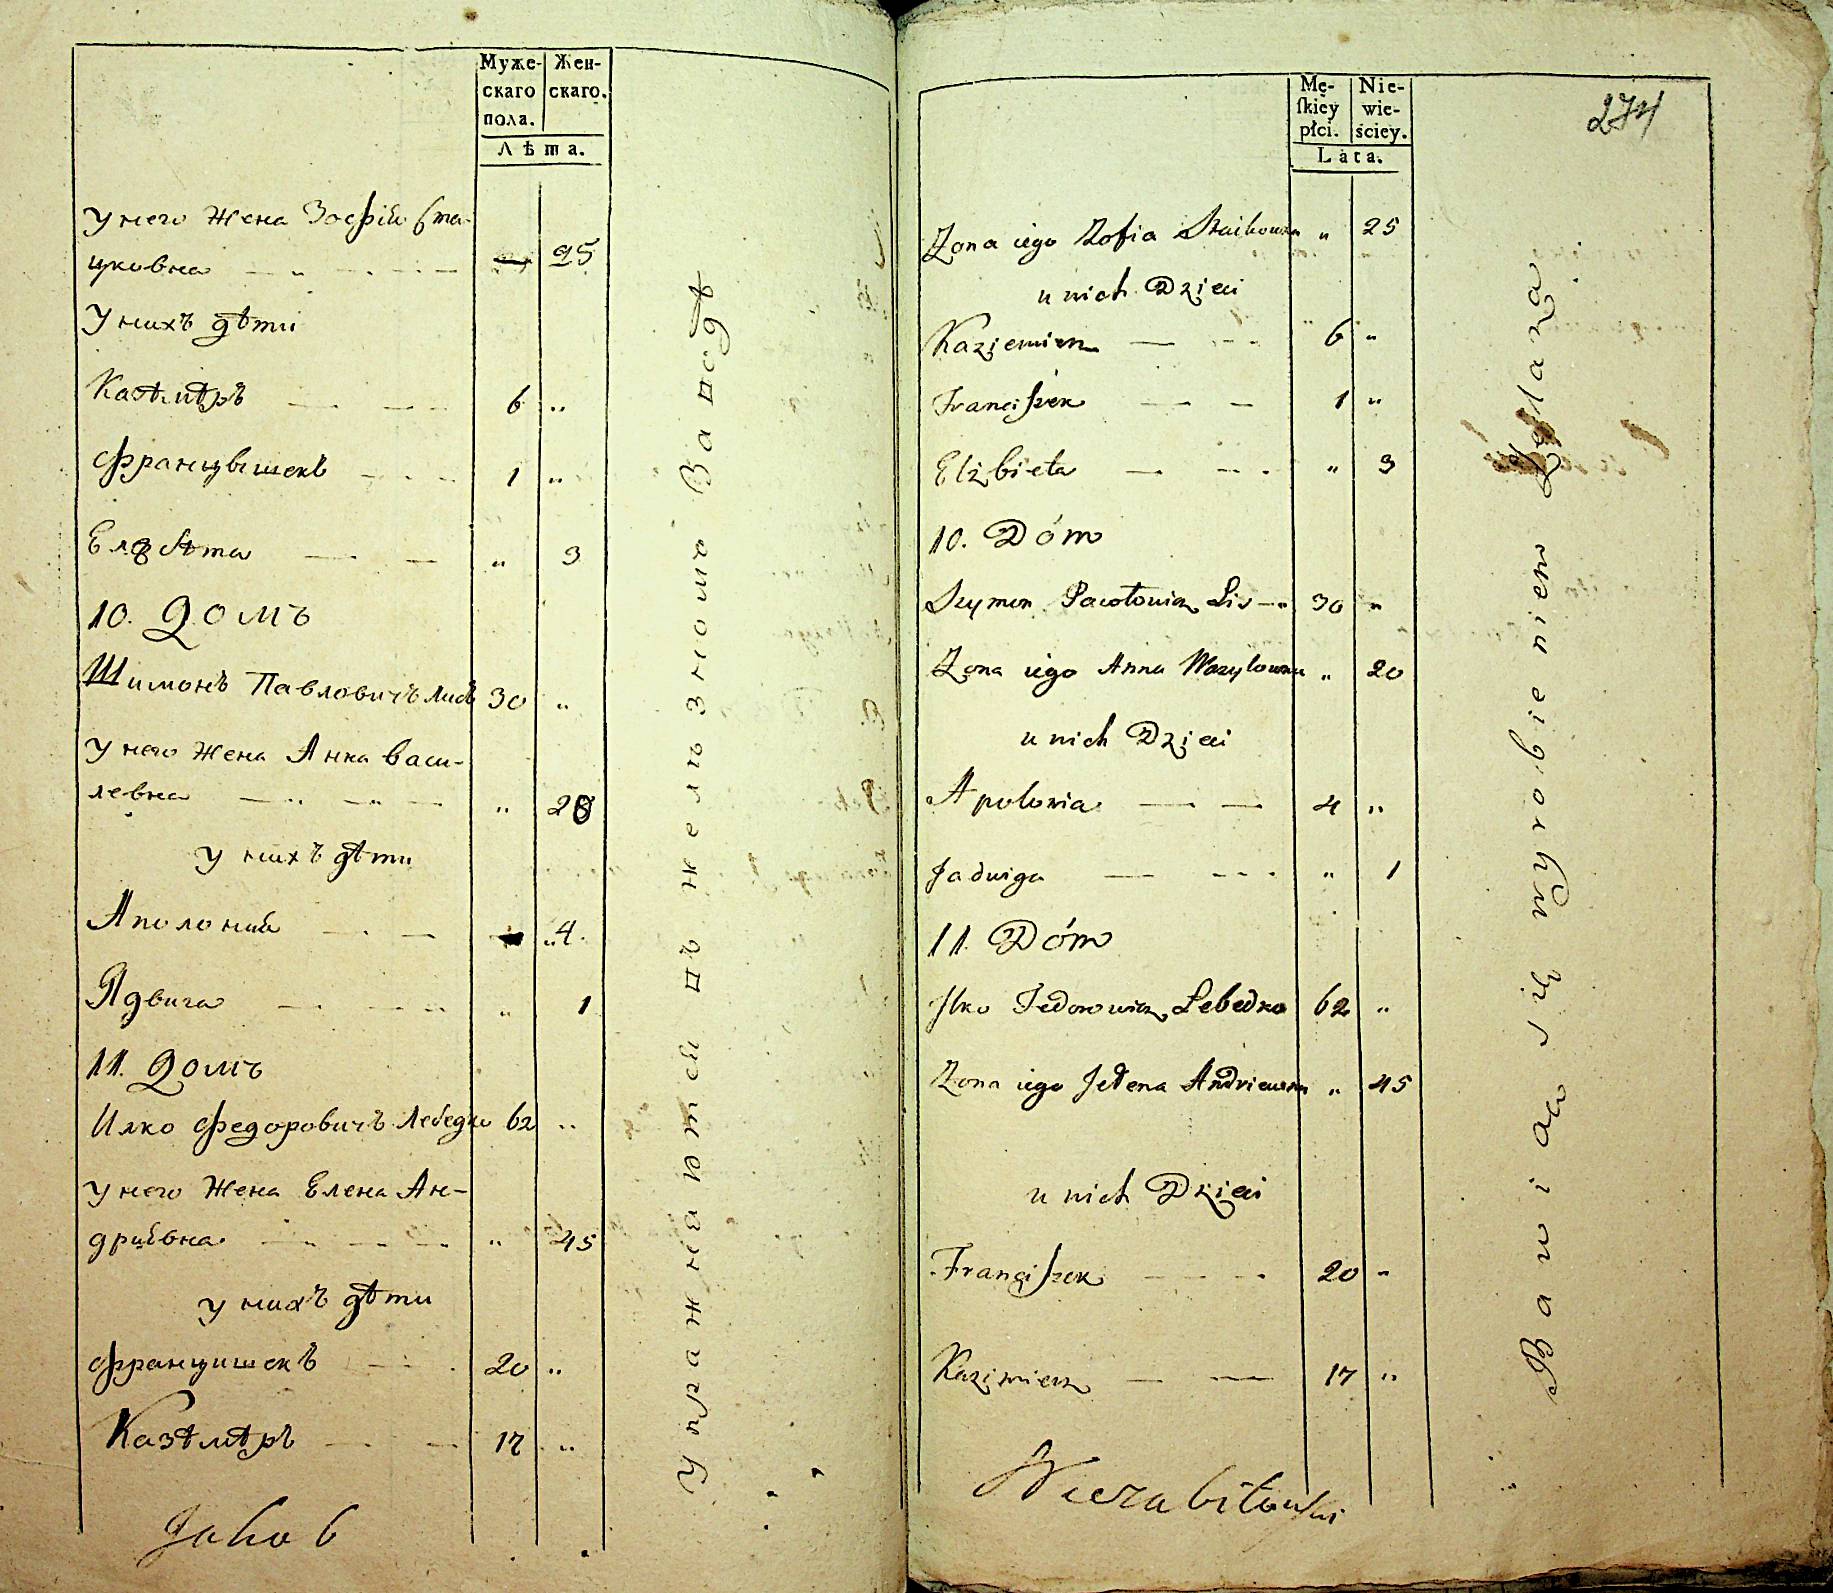 Муже- Жен-
скаго скаго.
пола.
Лѣта.
У него Жена Зофія Ста-
цковна — „ — 25
У нихъ дѣти
Казѣмѣръ — — 6 „
Францышекъ — — 1 „
Елзбѣта — — „ 3
10. Домъ
Шимонъ Павловичъ Лисъ 30 „
У него Жена Анна Васи-
левна — „ — „ — „ 20
у нихъ дѣти
Аполонія — — „ 4.
Ядвига — — „ 1
11. Домъ
Илко Федоровичъ Лебедко 62 „
У него Жена Елена Ан-
дріивна — — — „ 45
у нихъ дѣти
Францишекъ — — 20 „
Казѣмѣръ — — 17 „
Jakob
Mę- Nie-
ſkiéy wie-
płci. ściey.
Lata.
274
Żona iego Zofia Stackowna „ 25
u nich Dzieci
Kaziemierz — — 6 „
Franciſzek — — 1 „
Elżbieta — — „ 3
10. Dóm
Szymon Pawłowicz Lis — „ 30 „
Żona iego Anna Wazylowna „ 20
u nich Dzieci
Apolonia — — 4 „
Jadwiga — — „ 1
11. Dóm
Ilko Fedorowicz Lebedko 62 „
Żona iego Jełena Andriewna „ 45
u nich Dzieci
Franciſzek — — 20 „
Kazimierz — — 17 „
Bawiąc się wyrobieniem Żelaza